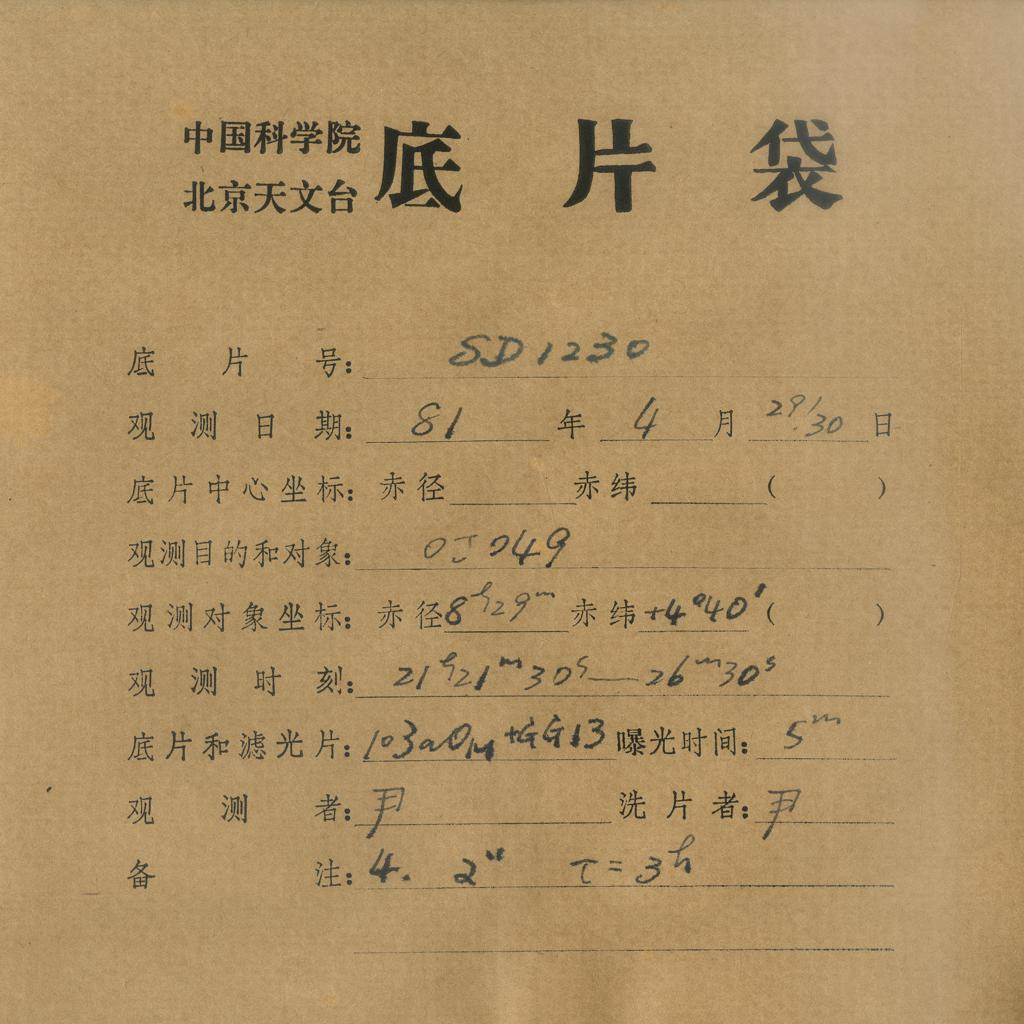 中国科学院
北京天文台
底片袋
底片号：SD1230
观测日期：81年4月29/30日
底片中心坐标：赤径 赤纬 （ ）
观测目的和对象：OJ049
观测对象坐标：赤径8ʰ29ᵐ 赤纬+4°40′（ ）
观测时刻：21ʰ21ᵐ30ˢ—26ᵐ30ˢ
底片和滤光片：103aO +GG13 曝光时间：5ᵐ
观测者：尹 洗片者：尹
备注：4. 2" τ=3ʰ